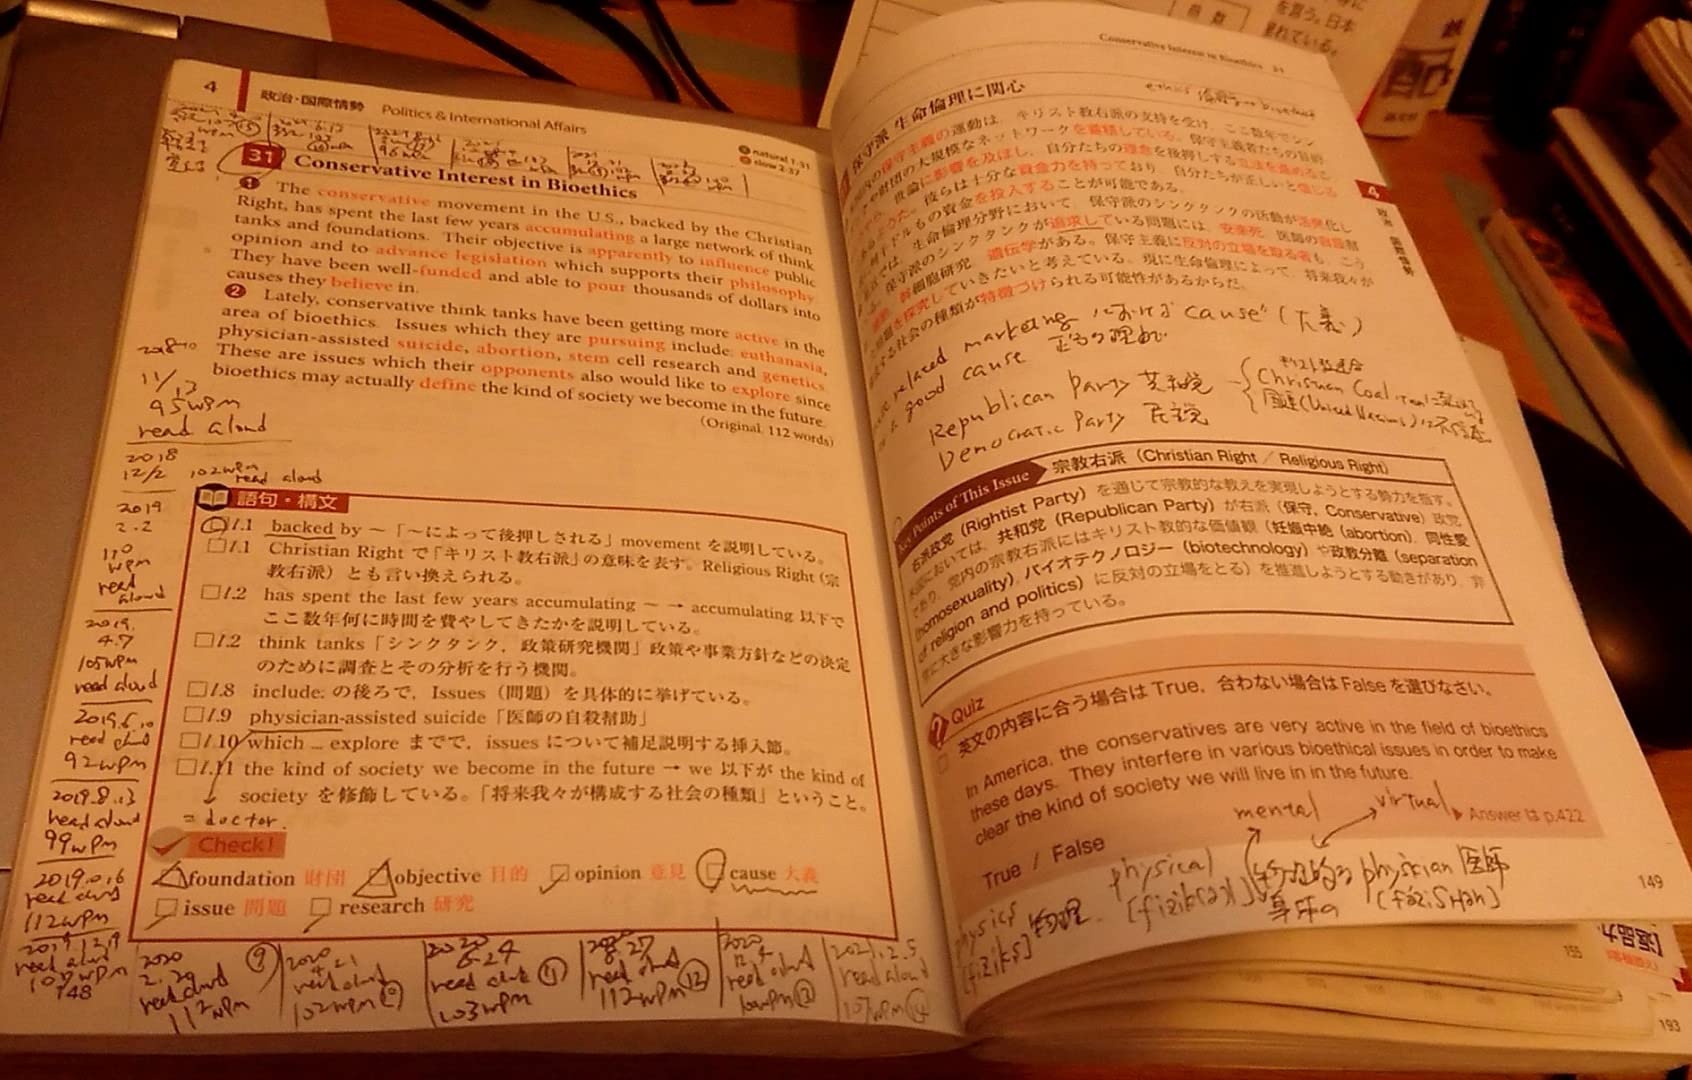 4 政治・国際情勢 Politics & International Affairs
natural 1:31
slow 2:37
31 Conservative Interest in Bioethics
❶ The conservative movement in the U.S., backed by the Christian
Right, has spent the last few years accumulating a large network of think
tanks and foundations. Their objective is apparently to influence public
opinion and to advance legislation which supports their philosophy.
They have been well-funded and able to pour thousands of dollars into
causes they believe in.
❷ Lately, conservative think tanks have been getting more active in the
area of bioethics. Issues which they are pursuing include: euthanasia,
physician-assisted suicide, abortion, stem cell research and genetics.
These are issues which their opponents also would like to explore since
bioethics may actually define the kind of society we become in the future.
(Original, 112 words)
11/13
95wpm
read aloud
2018
12/2 102wpm
read aloud
2019
2.2
110
wpm
read
aloud
2019.
4.7
105wpm
read aloud
2019.6.10
read aloud
92wpm
2019.8.13
read aloud
99wpm
read aloud
112wpm
2019.12.9
read aloud
語句・構文
l.1 backed by ～「～によって後押しされる」movement を説明している。
l.1 Christian Right で「キリスト教右派」の意味を表す。Religious Right（宗
教右派）とも言い換えられる。
l.2 has spent the last few years accumulating ～ → accumulating 以下で
ここ数年何に時間を費やしてきたかを説明している。
l.2 think tanks「シンクタンク，政策研究機関」政策や事業方針などの決定
のために調査とその分析を行う機関。
l.8 include: の後ろで，Issues（問題）を具体的に挙げている。
l.9 physician-assisted suicide「医師の自殺幇助」
l.10 which ... explore までで，issues について補足説明する挿入節。
l.11 the kind of society we become in the future → we 以下が the kind of
society を修飾している。「将来我々が構成する社会の種類」ということ。
= doctor.
Check!
foundation 財団 objective 目的 opinion 意見 cause 大義
issue 問題 research 研究
148
2020
2.29
read aloud
112wpm
⑨
2020
4.21
read aloud
102wpm⑩
2020
6.24
read aloud
103wpm
⑪
8.27
read aloud
112wpm⑫
2020
read aloud
⑬
2021.2.5
read aloud
107wpm⑭
Conservative Interest in Bioethics 31
保守派 生命倫理に関心
の保守主義の運動は，キリスト教右派の支持を受け，ここ数年でシン
や財団の大規模なネットワークを蓄積している。保守主義者たちの目的
世論に影響を及ぼし，自分たちの理念を後押しする立法を進めるこ
ようだ。彼らは十分な資金力を持っており，自分たちが正しいと信じる
何千ドルもの資金を投入することが可能である。
では，生命倫理分野において，保守派のシンクタンクの活動が活発化し
保守派のシンクタンクが追求している問題には，安楽死，医師の自殺幇
幹細胞研究，遺伝学がある。保守主義に反対の立場を取る者も，こう
問題を探究していきたいと考えている。現に生命倫理によって，将来我々が
する社会の種類が特徴づけられる可能性があるからだ。
related marketing における "cause" (大義)
good cause 正当な理由
Republican Party 共和党
Democratic Party 民主党
Christian Coalition
国連(United Nations)に不信
Key Points of This Issue 宗教右派（Christian Right / Religious Right）
右派政党（Rightist Party）を通じて宗教的な教えを実現しようとする勢力を指す。
米国においては，共和党（Republican Party）が右派（保守，Conservative）政党
であり，党内の宗教右派にはキリスト教的な価値観（妊娠中絶（abortion），同性愛
（homosexuality），バイオテクノロジー（biotechnology）や政教分離（separation
of religion and politics）に反対の立場をとる）を推進しようとする動きがあり，非
常に大きな影響力を持っている。
4
政治・国際情勢
Quiz
英文の内容に合う場合は True，合わない場合は False を選びなさい。
In America, the conservatives are very active in the field of bioethics
these days. They interfere in various bioethical issues in order to make
clear the kind of society we will live in in the future.
Answer は p.422
True / False
mental virtual
physical 物理的な physician 医師
身体の
physics 物理
[fiziks]
149
155
193